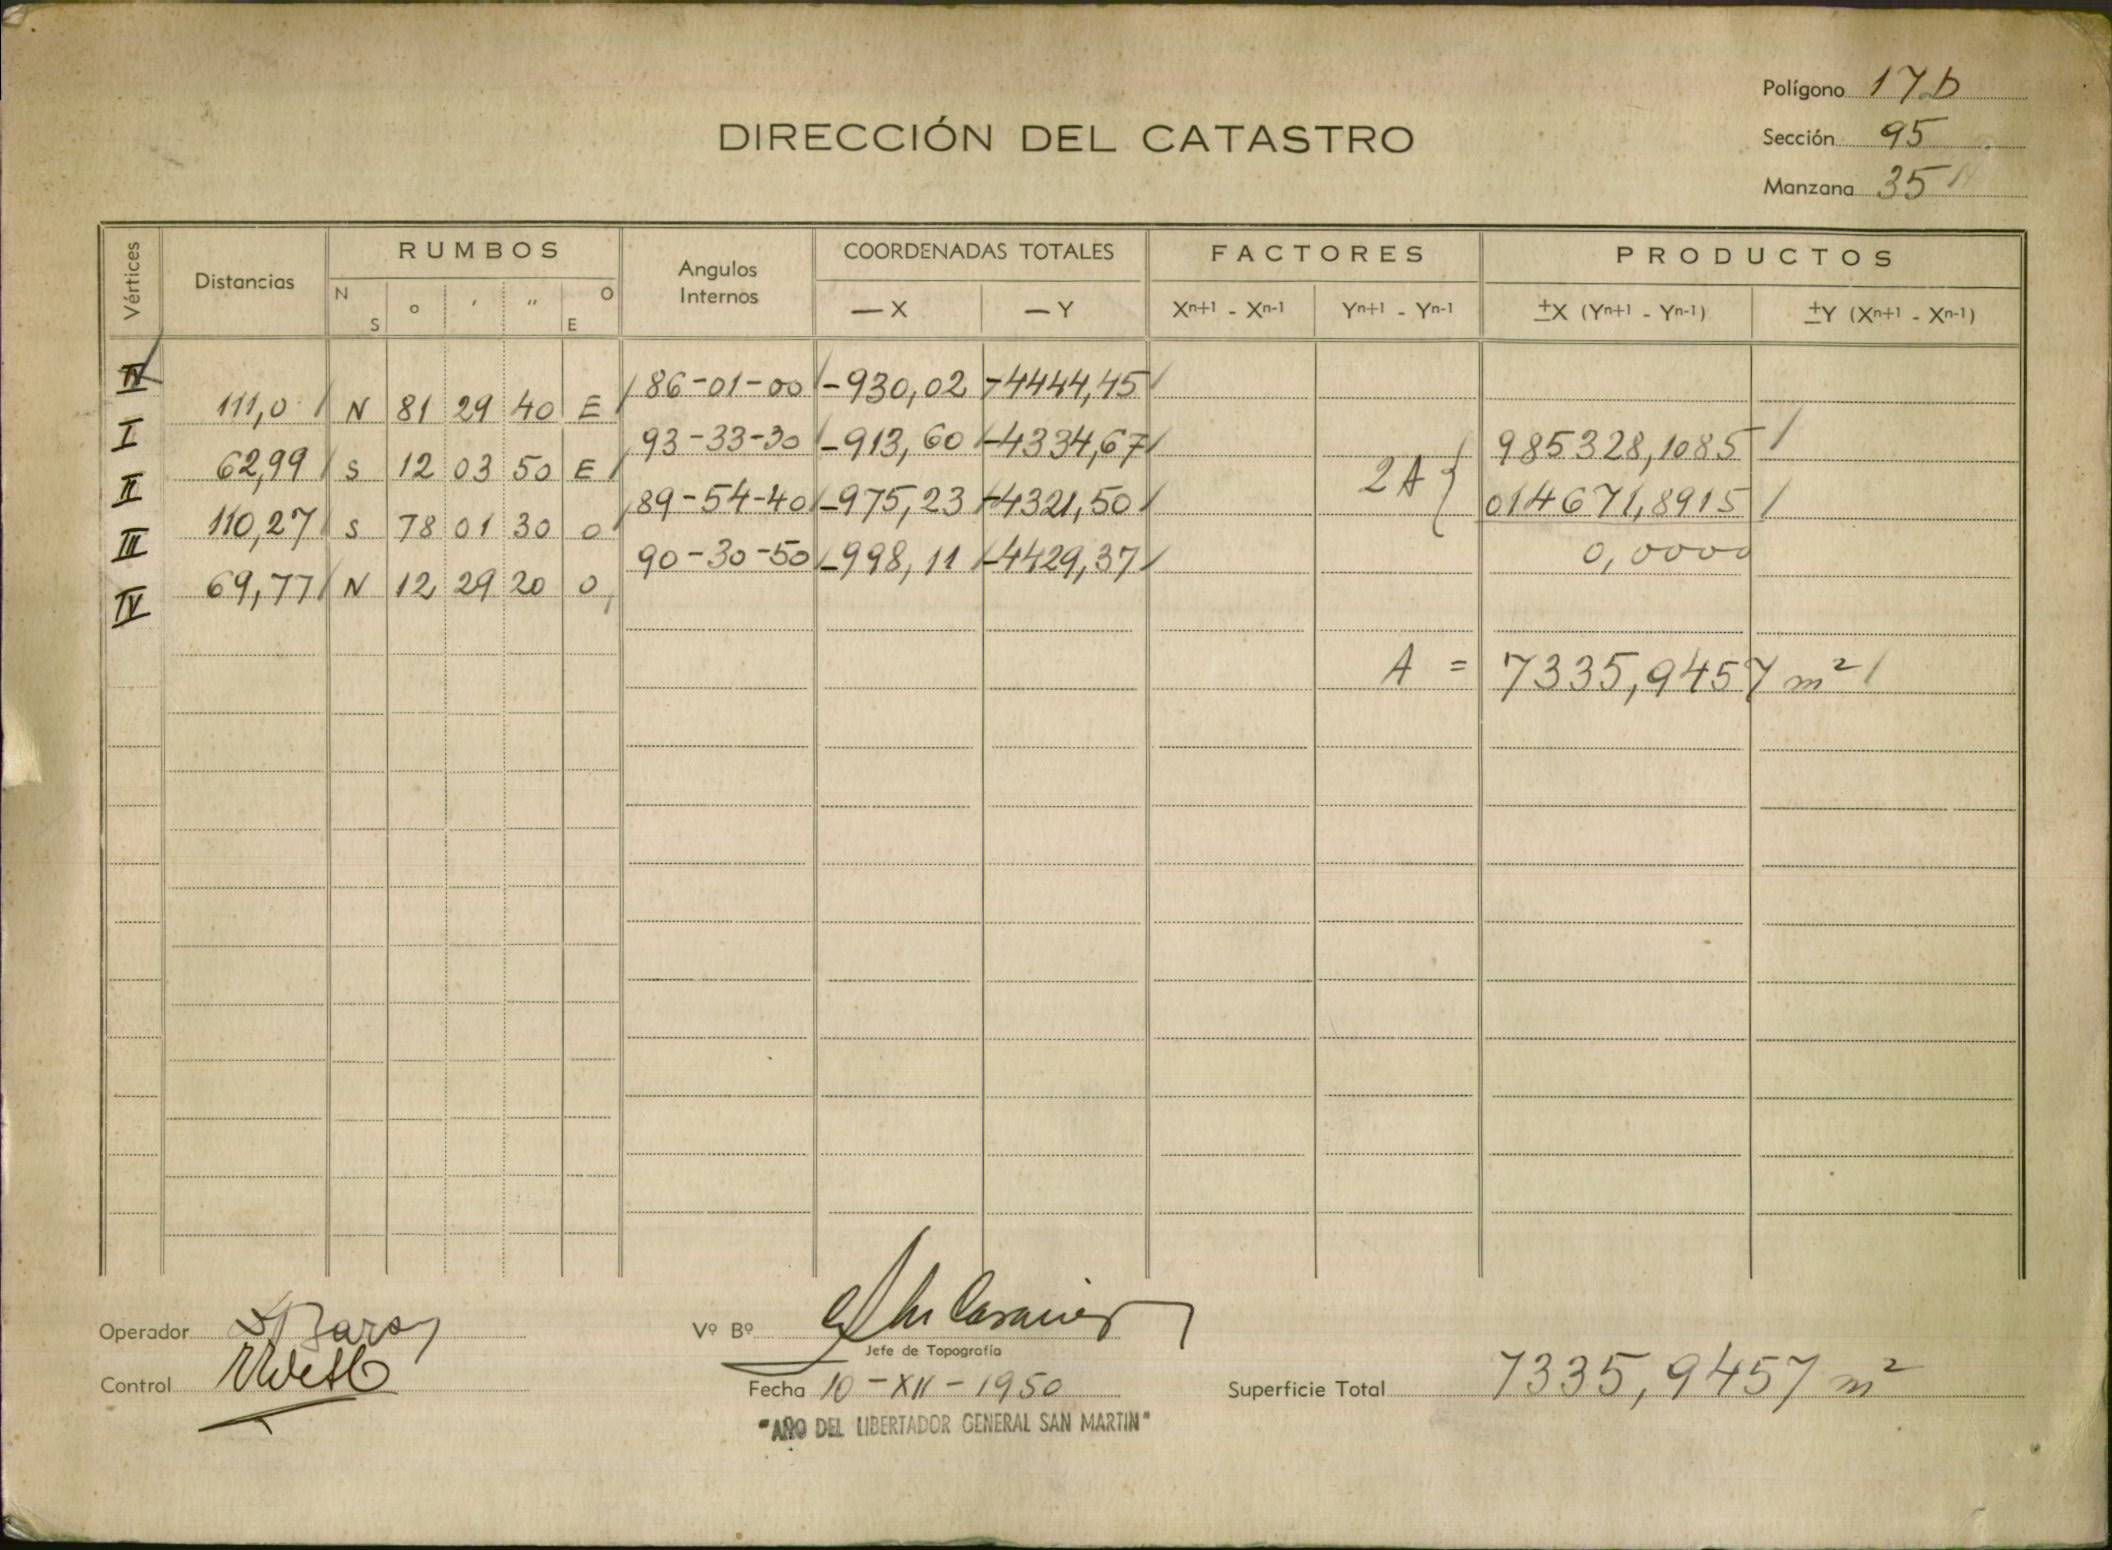 Polígono 17 b
DIRECCIÓN DEL CATASTRO
Sección 95
Manzana 35
Vértices Distancias RUMBOS Angulos Internos COORDENADAS TOTALES FACTORES PRODUCTOS
N S ° ' " O E — X — Y Xⁿ⁺¹ - Xⁿ⁻¹ Yⁿ⁺¹ - Yⁿ⁻¹ ±X (Yⁿ⁺¹ - Yⁿ⁻¹) ±Y (Xⁿ⁺¹ - Xⁿ⁻¹)
IV 86-01-00 -930,02 -4444,45
111,0 N 81 29 40 E
I 93-33-30 -913,60 -4334,67 985328,1085
62,99 S 12 03 50 E
2A {
II 89-54-40 -975,23 -4321,50 014671,8915
110,27 S 78 01 30 O
III 90-30-50 -998,11 -4429,37 0,0000
69,77 N 12 29 20 O
IV
A = 7335,9457 m²
Operador
Control
Vº Bº
Jefe de Topografía
Fecha 10-XII-1950
Superficie Total 7335,9457 m²
"AÑO DEL LIBERTADOR GENERAL SAN MARTIN"